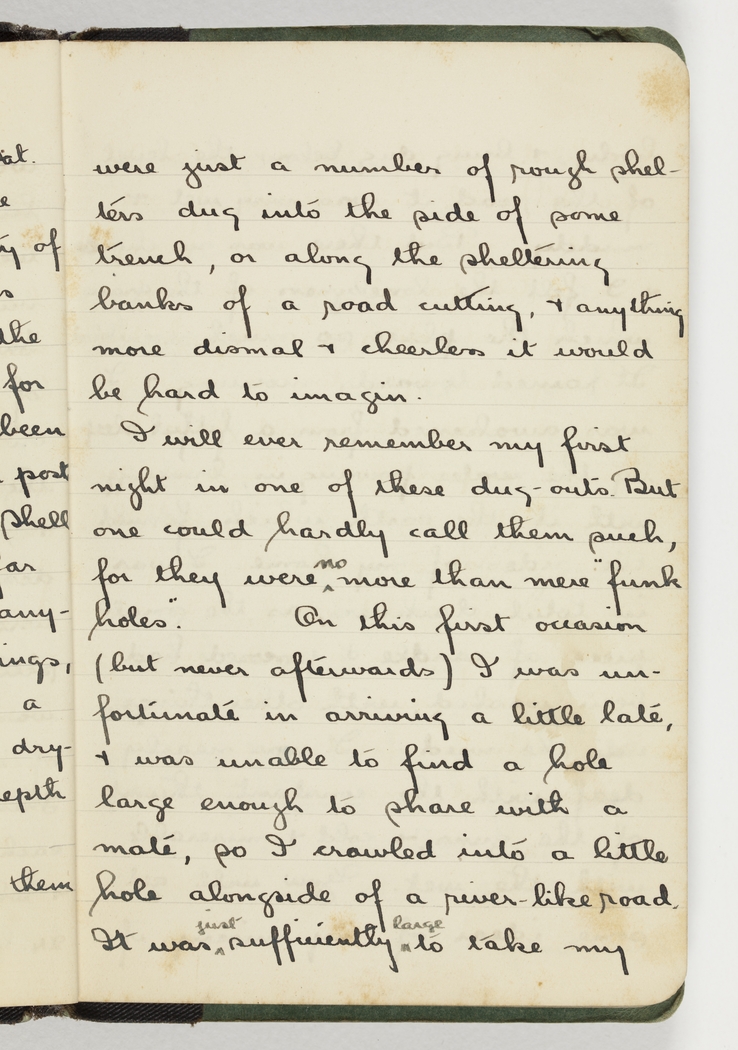 at.
e
y of
s
the
for
been
post
shell
ar
any-
ings,
a
dry-
epth
them
were just a number of rough shel-
ters dug into the side of some
trench, or along the sheltering
banks of a road cutting, + anything
more dismal + cheerless it would
be hard to imagin.
I will ever remember my first
night in one of these dug-outs. But
one could hardly call them such,
for they were no more than mere "funk
holes". On this first occasion
(but never afterwards) I was un-
fortunate in arriving a little late,
+ was unable to find a hole
large enough to share with a
mate, so I crawled into a little
hole alongside of a river-like road.
It was just sufficiently large to take my